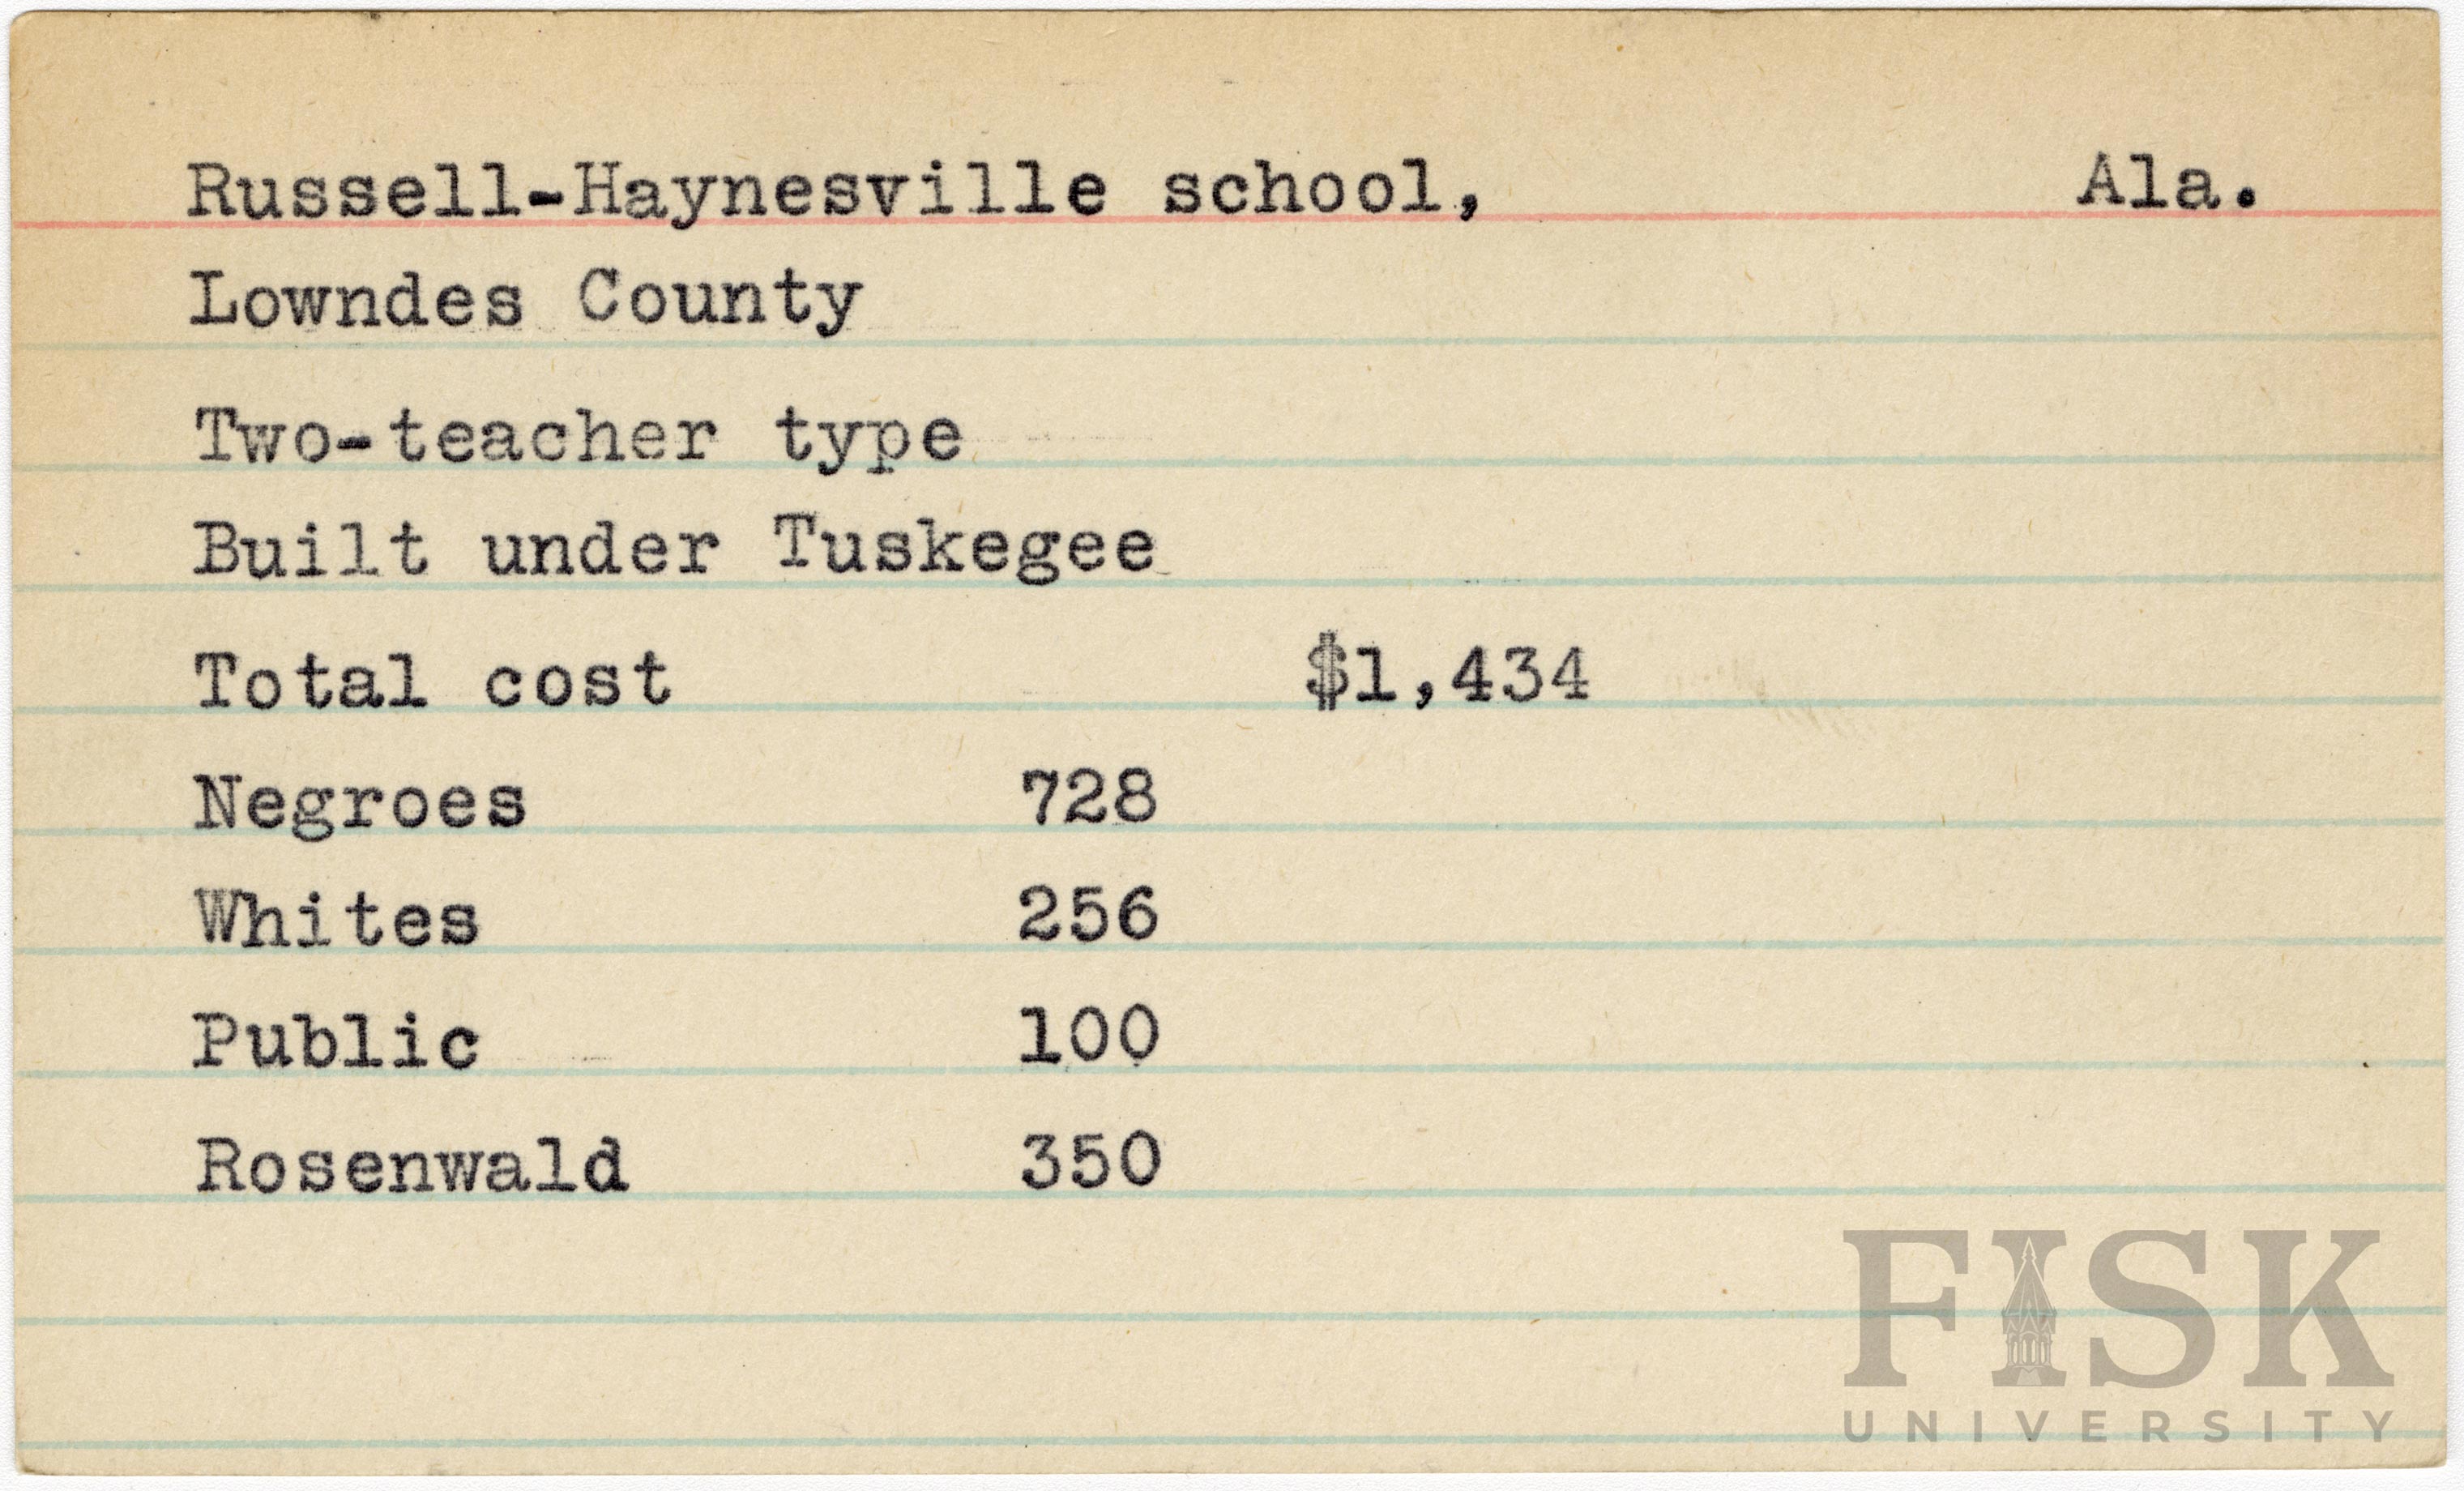 Russell-Haynesville school, Ala.
Lowndes County
Two-teacher type
Built under Tuskegee
Total cost $1,434
Negroes 728
Whites 256
Public 100
Rosenwald 350
FISK
UNIVERSITY